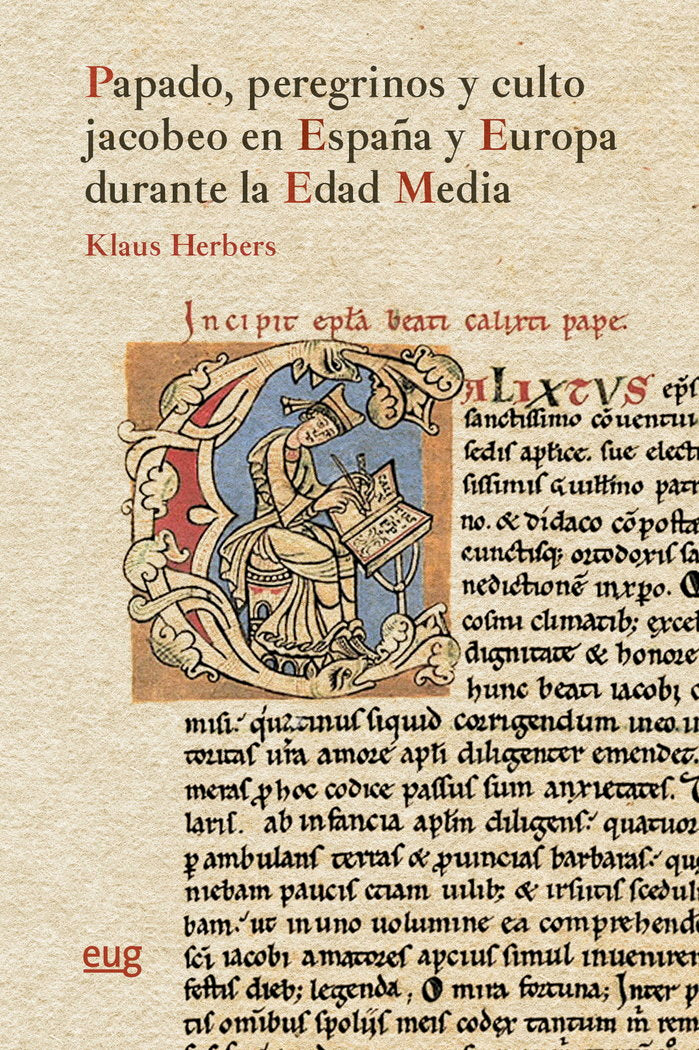 Papado, peregrinos y culto
jacobeo en España y Europa
durante la Edad Media
Klaus Herbers
Incipit epła beati calixti pape.
CALIXTVS ep̃s
sanctissimo cõuentui
sedis aplice. sue electi
ssimis q Willmo patr
no. & didaco cõposta
cunctisq; ortodoxis sa
nedictionẽ in xp̃o.
cosmi climatib; excel
dignitate & honore
hunc beati iacobi c
misi. quatinus siquid corrigendum in eo in
toritas ura amore apli diligenter emendet.
meras p hoc codice passus sum anxietates.
laris. ab infancia aplm diligens. quatuor
p ambulans terras & puincias barbaras. que
niebam paucis etiam uilib; & irsutis scedul
bam. ut in uno uolumine ea comprehende
sci iacobi amatores apcius simul inuenirent
festis dieb; legenda, O mira fortuna; Inter p
tis omibus spolijs meis codex tantum m rem
eug